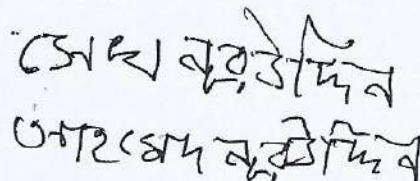 সেখ নূরউদ্দিন
আহমেদ নূরউদ্দিন